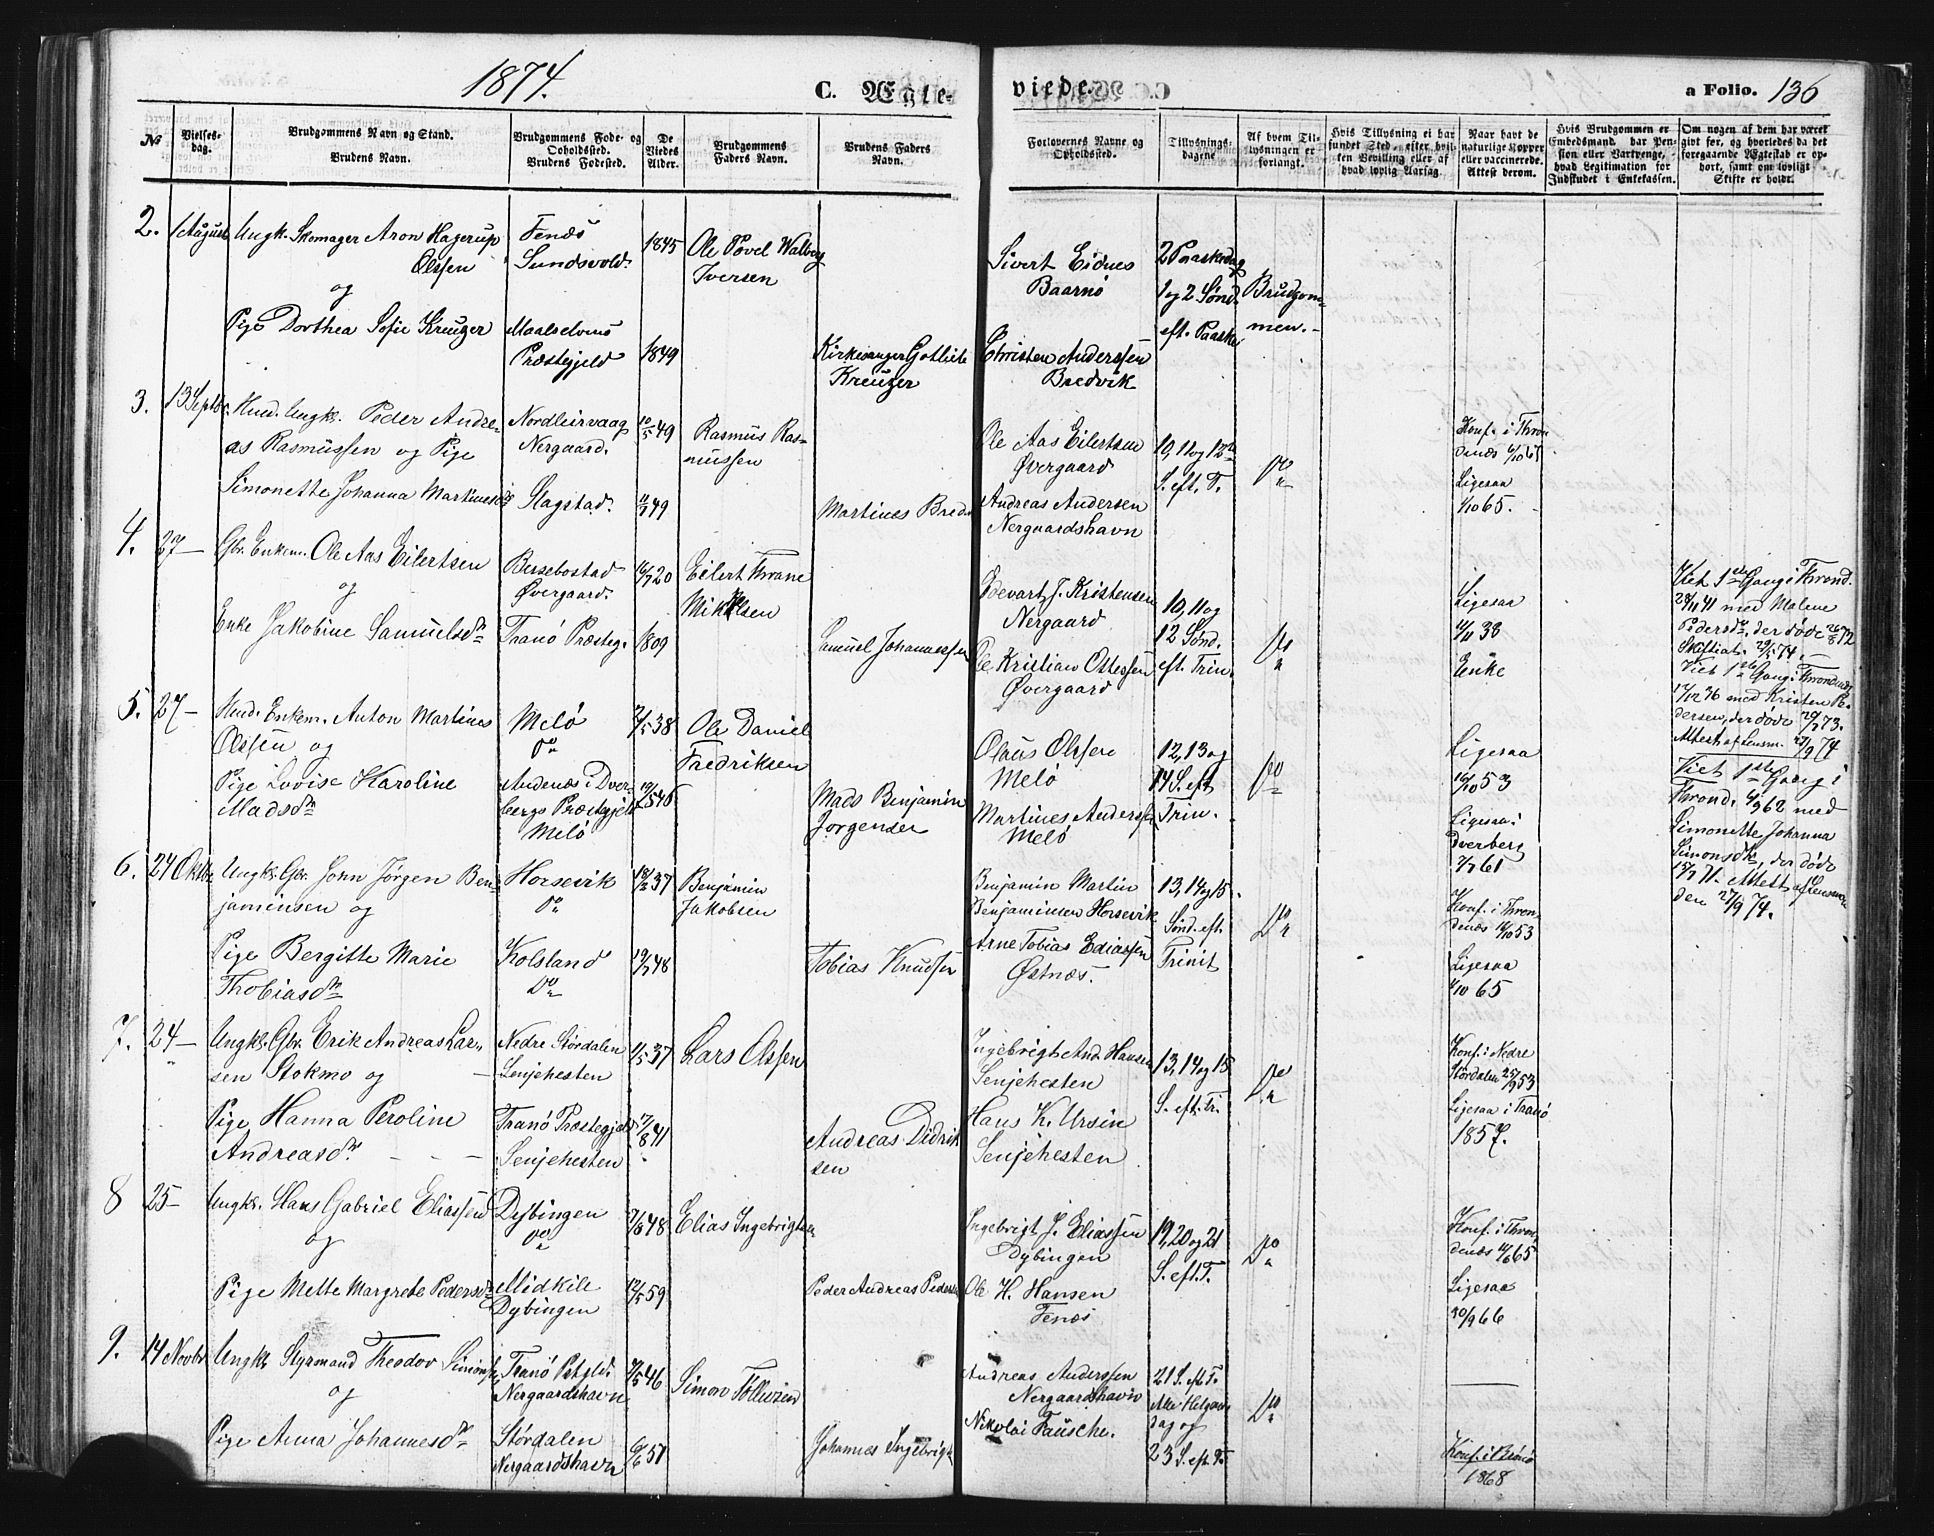 1874.
C. Ægteviede.
a Folio. 136
No
Vielses-dag.
Brudgommens Navn og Stand.
Brudens Navn.
Brudgommens Føde- og Opholdssted.
Brudens Fødested.
De Viedes Alder.
Brudgommens Faders Navn.
Brudens Faders Navn.
Forlovernes Navne og Opholdssted.
Tillysnings-dagene
Af hvem Tillysningen er forlangt.
Hvis Tillysning ei har fundet Sted, efter hvilken Bevilling eller af hvad lovlig Aarsag.
Naar havt de naturlige Kopper eller vaccinerede. Attest derom.
Hvis Brudgommen er Embedsmand, har Pension eller Vartpenge, hvad Legitimation for Indskudet i Enkekassen.
Om nogen af dem har været gift før, og hvorledes da det foregaaende Ægteskab er ophørt, samt om lovligt Skifte er holdt.
2. 1 August Ungk. Skomager Aron Hagerup Olssen
og
Pige Dorthea Sofie Kreuzer
Fenæs
Sundsvold.
Maalselvens
Præstegjeld
1845
1849
Ole Povel Walberg
Iversen
Kirkesanger Gotlieb
Kreuzer
Sivert Eidnes
Baarnø
Christen Anderssen
Bredvik
2 Paaskedag
1 og 2 Sønd.
eft. Paaske
Brudgom-
men.
3. 13 Septbr. Huud. Ungk. Peder Andre-
as Rasmussen og Pige
Simonette Johanna Martinesd
Nordleirvaag
Nergaard.
Slagstad.
10/5 49
49
Rasmus Ras-
mussen
Martines Bred
Ole Aas Eilertsen
Øvergaard
Andreas Andersen
Nergaardshavn
10, 11 og 12te
S. eft. T.
Do
Konf. i Thron
denæs
Ligesaa
1/10 65.
4. 27 - Gbr. Enkem. Ole Aas Eilertsen
og
Enke Jakobine Samuelsdr
Bersebostad
Øvergaard.
Tranø Præsteg.
16/7 20
1809
Eilert Thrane
Mikkelsen
Samuel Johannessen
Edevart J. Kristensen
Nergaard
Ole Kristian Ottessen
Øvergaard
10, 11 og
12 Sønd.
eft. Trin.
Do
Ligesaa
38
Enke
Viet 1ste Gang i Thrond.
28/11 41 med Malene
Pedersdr, der døde 26/8 72
Skiftiat. 74.
Viet 1ste Gang i Throndenæs
36 med Kristen Pe-
dersen, der døde 73.
Attest af Lensm. 74
5. 27 - Huud. Enkem. Anton Martines
Olssen og
Pige Lovise Karoline
Madsdr
Melø
Do
Andenæs i Dver-
bergs Præstegjeld
Melø
38
Ole Daniel
Fredriksen
Mads Benjamin
Jørgensen
Olaus Olssen
Melø
Martines Anderssen
Melø
12, 13 og
14 S. eft
Trin.
Do
Ligesaa
16/10 53
Ligesaa i
Dverberg
61
Viet 1ste Gang i
Thrond. 4/9 62 med
Simonette Johanna
Simonsdtr, der døde
71. Attest af Lensman
den 27/9 74.
6. 24 Oktbr Ungk. Gbr. John Jørgen Ben-
jaminsen og
Pige Bergitte Marie
Thobiasdr
Horsevik
Do
Kolsland
Do
37
19/7 48
Benjamin
Jakobsen
Tobias Knudsen
Benjamin Martin
Benjaminsen Horsevik
Arne Tobias Ediassen
Østnæs.
13, 14 og 15
Sønd. eft.
Trinit
Do
Konf. i Thron
denæs 16/10 53
Ligesaa
1/10 65
7. 24 - Ungk. Gbr. Erik Andreas Lar-
sen Stokmo og
Pige Hanna Peroline
Andreasdr.
Nedre Stordalen
Senjehesten
Tranø Præstegjeld
Senjehesten
1/5 37
17/8 41
Lars Olssen
Andreas Didrik
sen
Ingebrigt And. Hansen
Senjehesten
Hans K. Ursin
Senjehesten
13, 14 og 15
S. eft. Tr.
Do
Konf. i Nedre
Stordalen 25/9 53
Ligesaa i Tranø
1857.
8 25 - Ungk. Hans Gabriel Eliassen
og
Pige Mette Margrete Pedersdr
Dybingen
Do
Midkile
Dybingen
48
12/5 59
Elias Ingebrigtsen
Peder Andreas Pedersen
Ingebrigt J. Eliassen
Dybingen
Ole H. Hansen
Fenæs
19, 20 og 21
S. eft. T.
Do
Konf. i Thron
denæs 65
Ligesaa
30/9 66
9. 14 Novbr Ungk Styrmand Theodor Simonsen
og
Pige Anna Johannesdr
Tranø Pstgld.
Nergaardshavn
Stordalen
Nergaardshavn
46
6/6 51
Simon Tollevsen
Johannes Ingebrigt
Andreas Anderssen
Nergaardshavn
Nikolai Fausche.
21 S. eft T.
Alle Helgens
dag og
23 S. eft T.
Do
Konf. i Beiøiø
1868